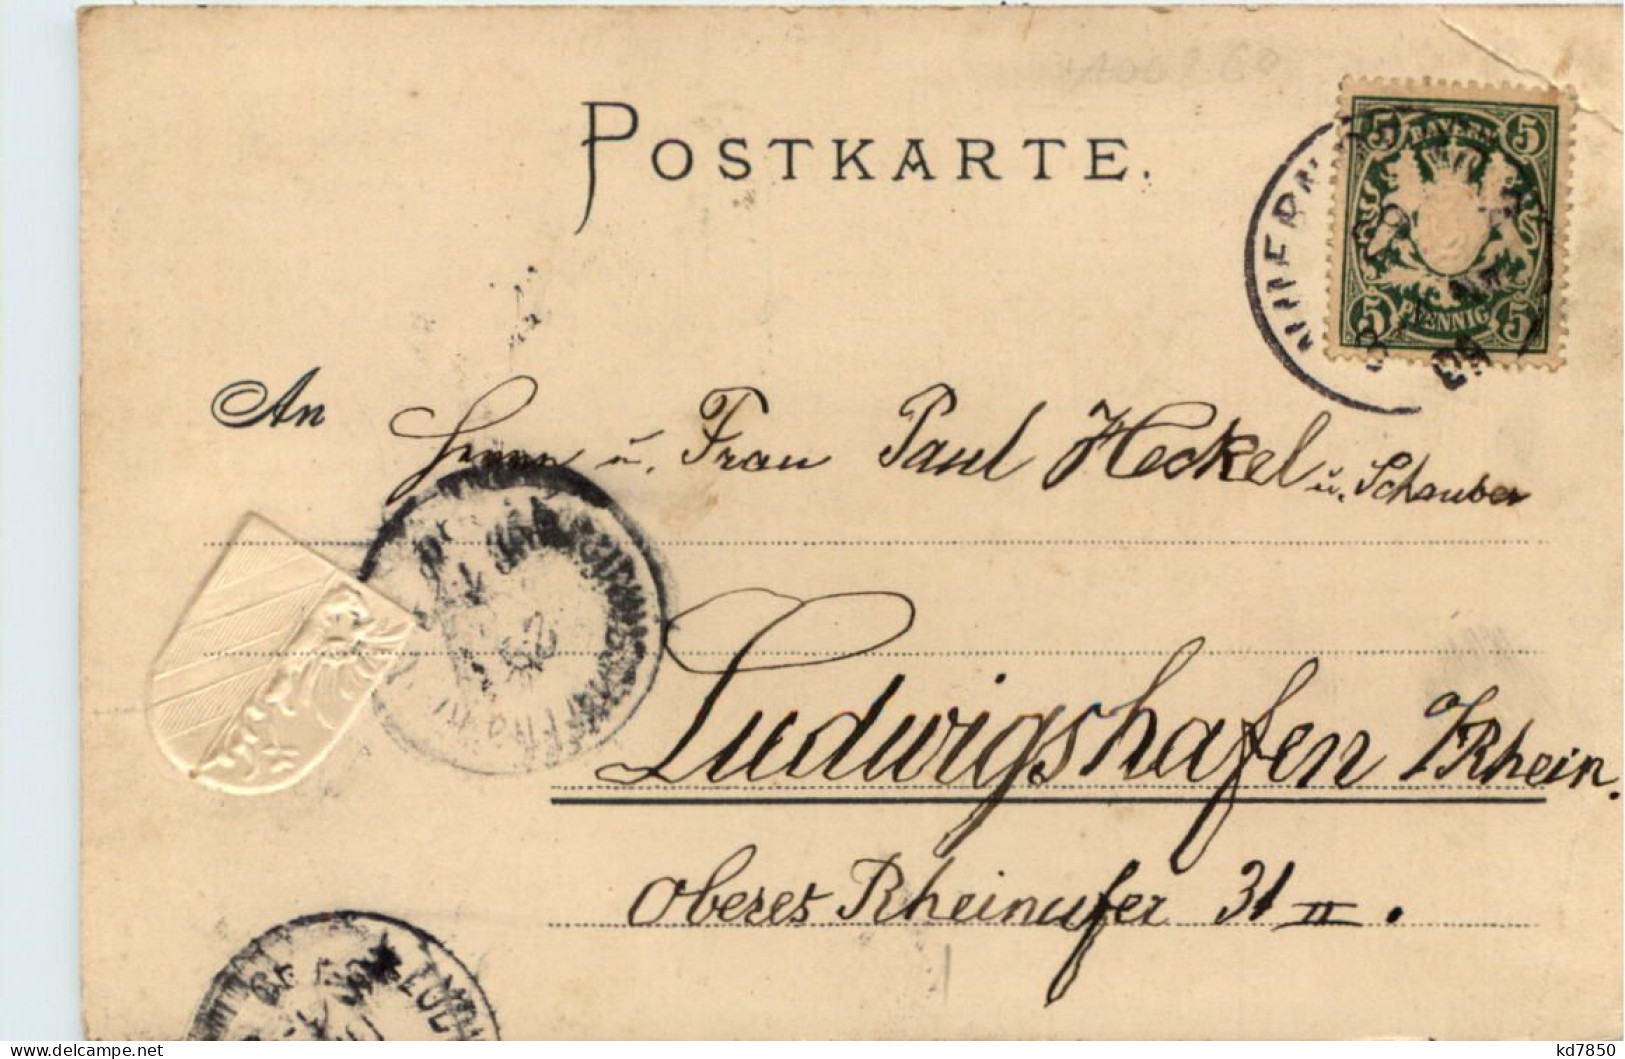 POSTKARTE.
5 BAYERN 5
5 PFENNIG 5
An Herrn u. Frau Paul Heckel u. Schauber
Ludwigshafen a/Rhein.
Oberes Rheinufer 31 II.
kd7850